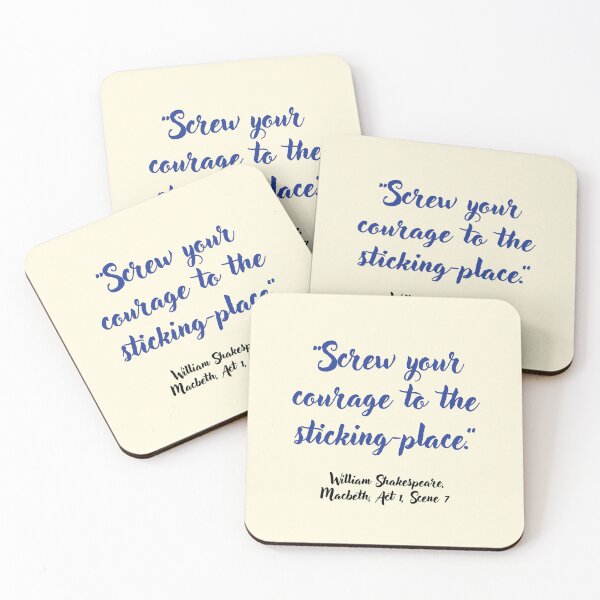 "Screw your
courage to the
place."
"Screw your
courage to the
sticking-place."
"Screw your
courage to the
sticking-place"
William
Macbeth, Act 1,
"Screw your
courage to the
sticking-place."
William Shakespeare,
Macbeth, Act 1, Scene 7